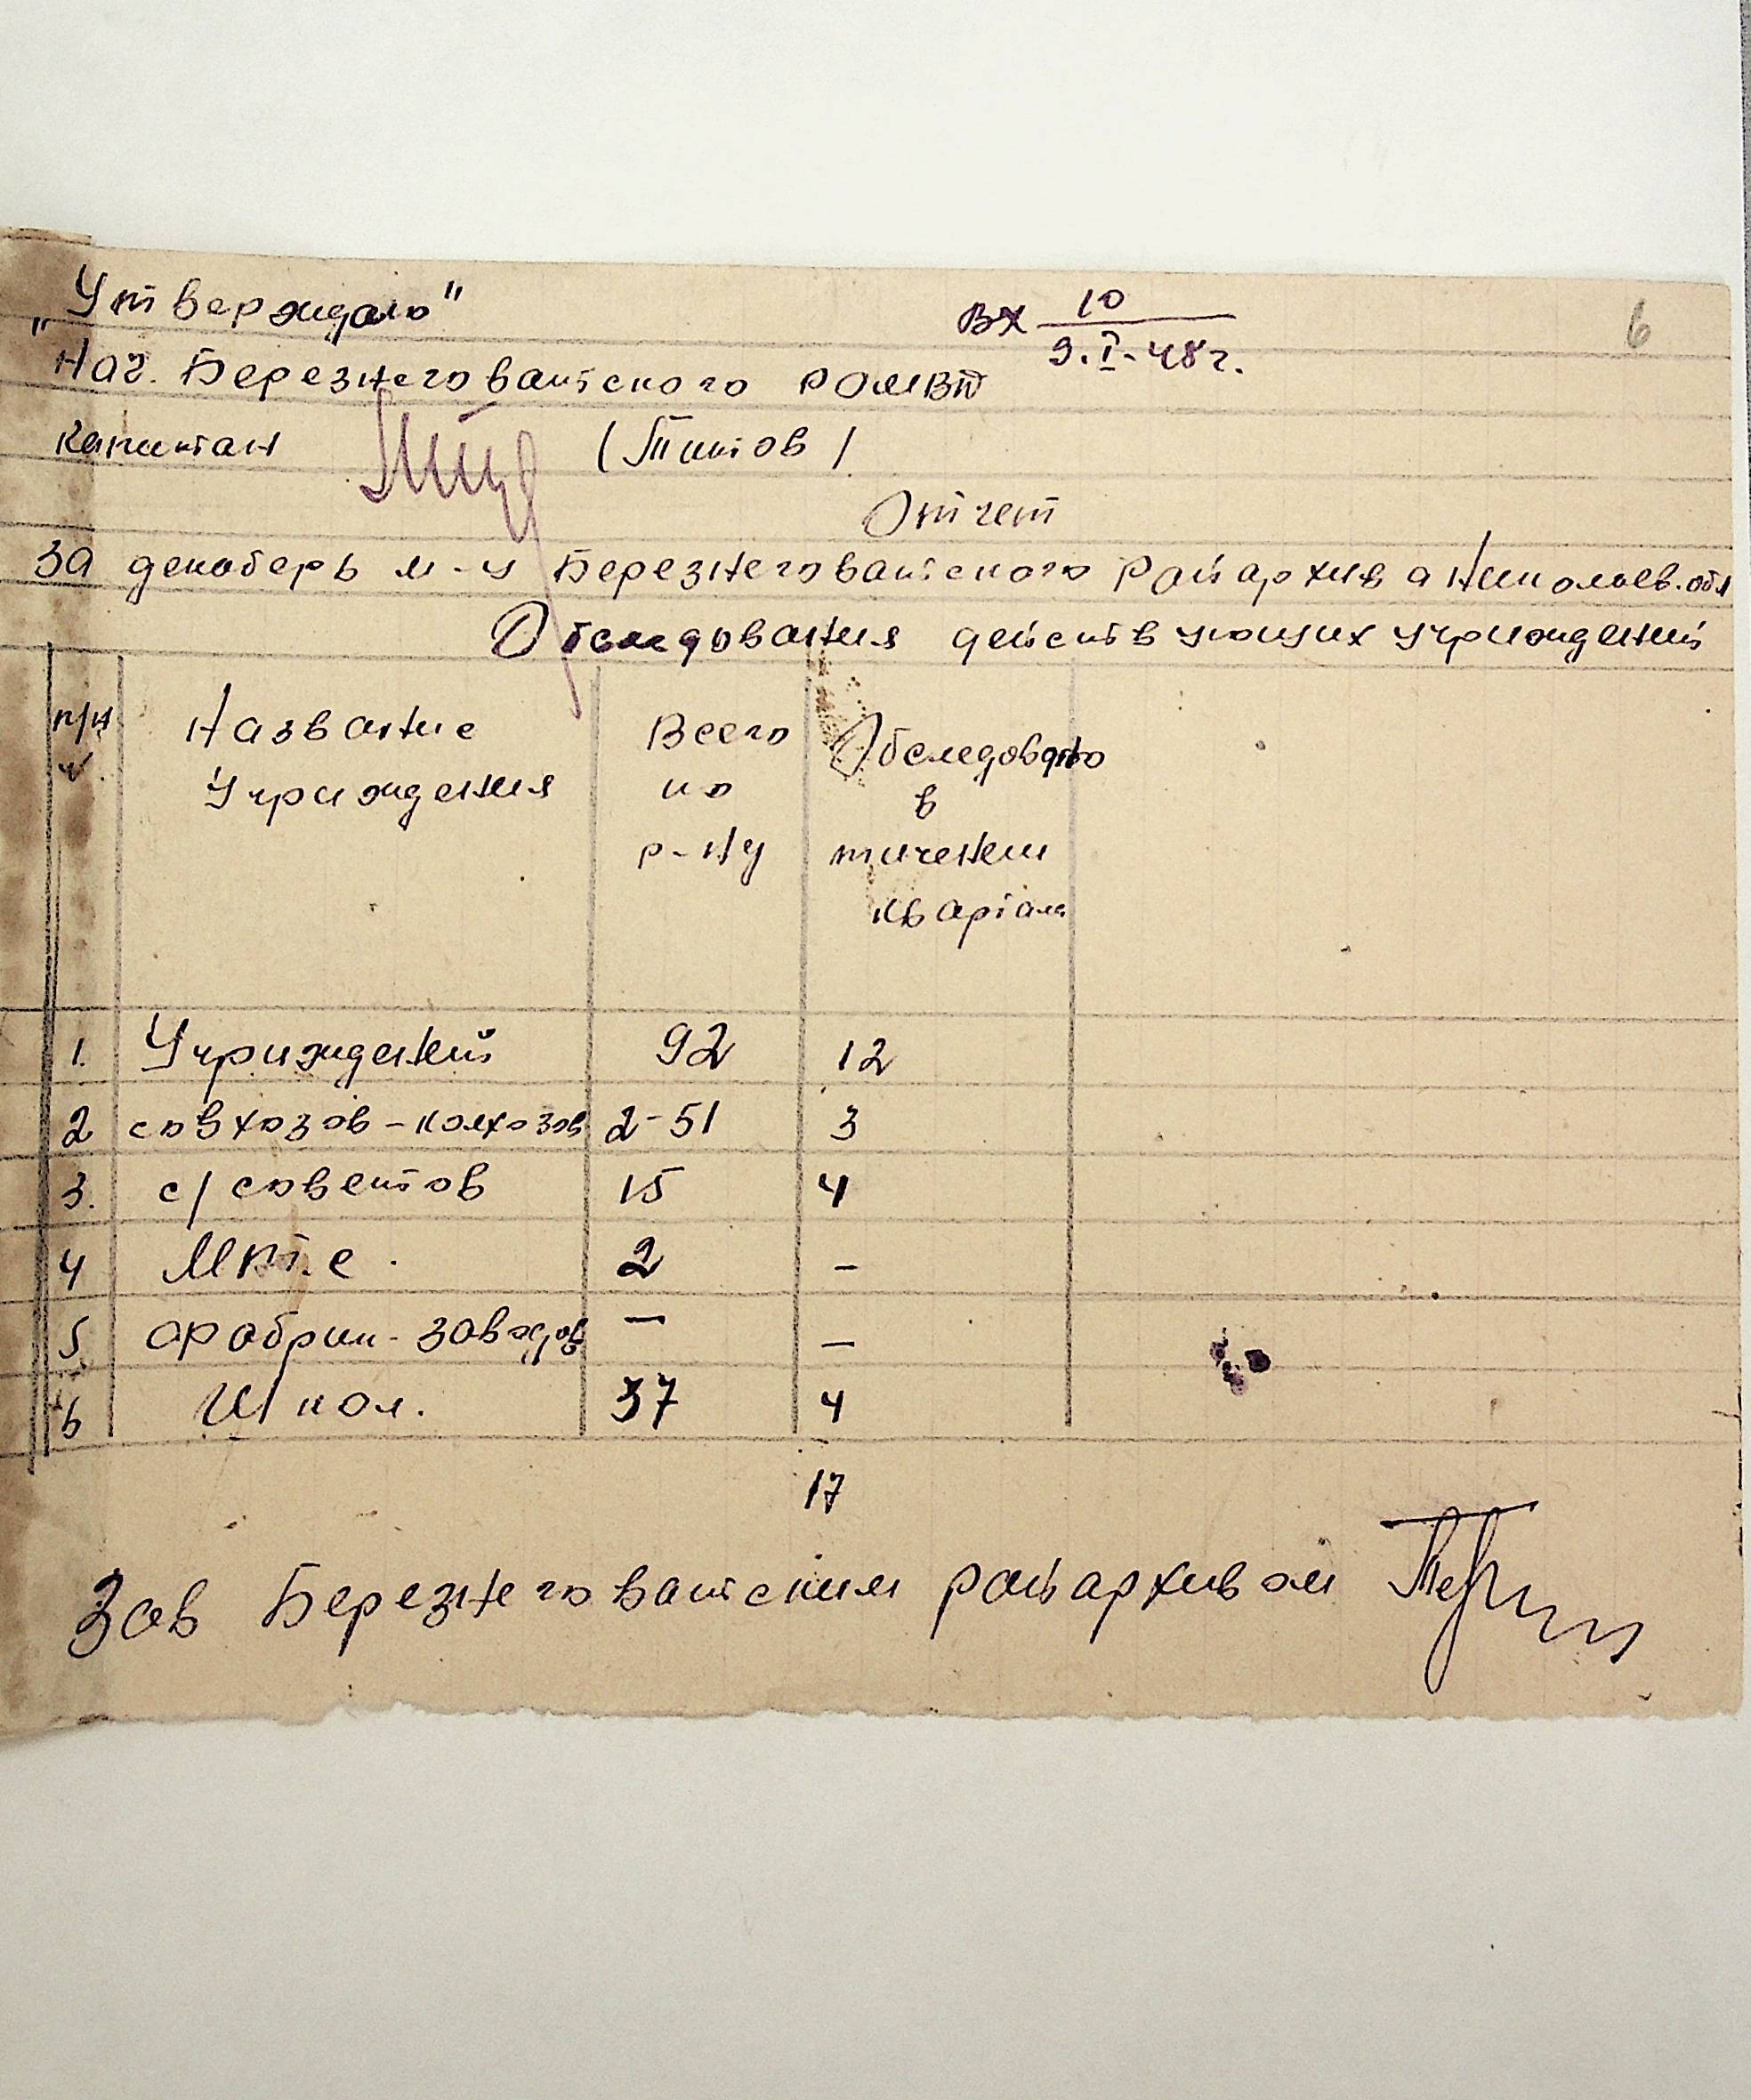 „Утверждаю"
Вх 10
9.I-48 г.
6
Нач. Березнеговатского РОМВД
капитан (Титов)
Отчет
за декабрь м-ц Березнеговатского Райархива Николаев. обл
Обследования действующих Учриждений
п/н Название Всего Обследовано
Учриждения по в
р-ну тичении
квартала
1. Учриждений 92 12
2 совхозов-колхозов 2-51 3
3. с/советов 15 4
4 Мтс. 2 –
5 Фабрик-заводов – –
6 Школ. 37 4
17
Зав Березнеговатским райархивом